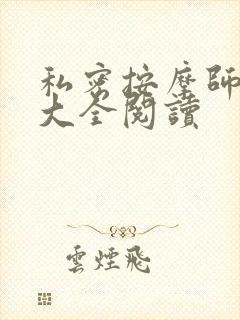 私密按摩師
大全閱讀
雲煙飛